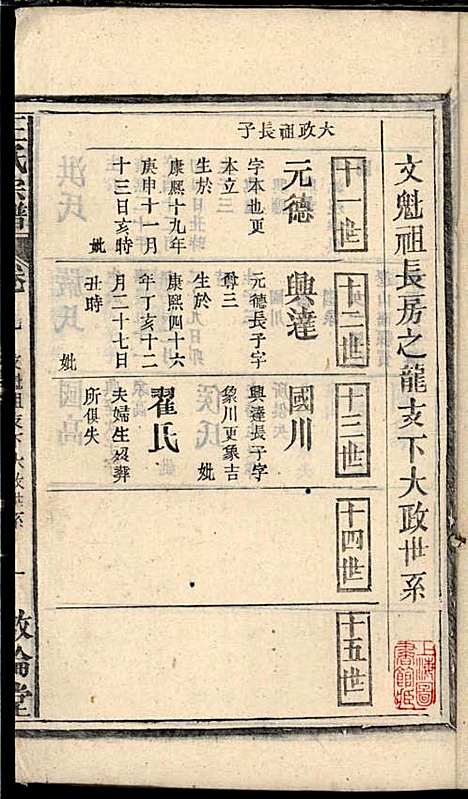 文魁祖長房之龍支下大政世系
十一世
大政祖長子
元德
字本也更
本立三
生於
康熙十九年
庚申十一月
十三日亥時
妣
十二世
興達
元德長子字
尊三
生於
康熙四十六
年丁亥十二
月二十七日
丑時
妣
十三世
國川
興達長子字
象川更象吉
妣
翟氏
夫婦生歿葬
所俱失
十四世
十五世
王氏宗譜
卷
一
敦倫堂
上海圖書館藏